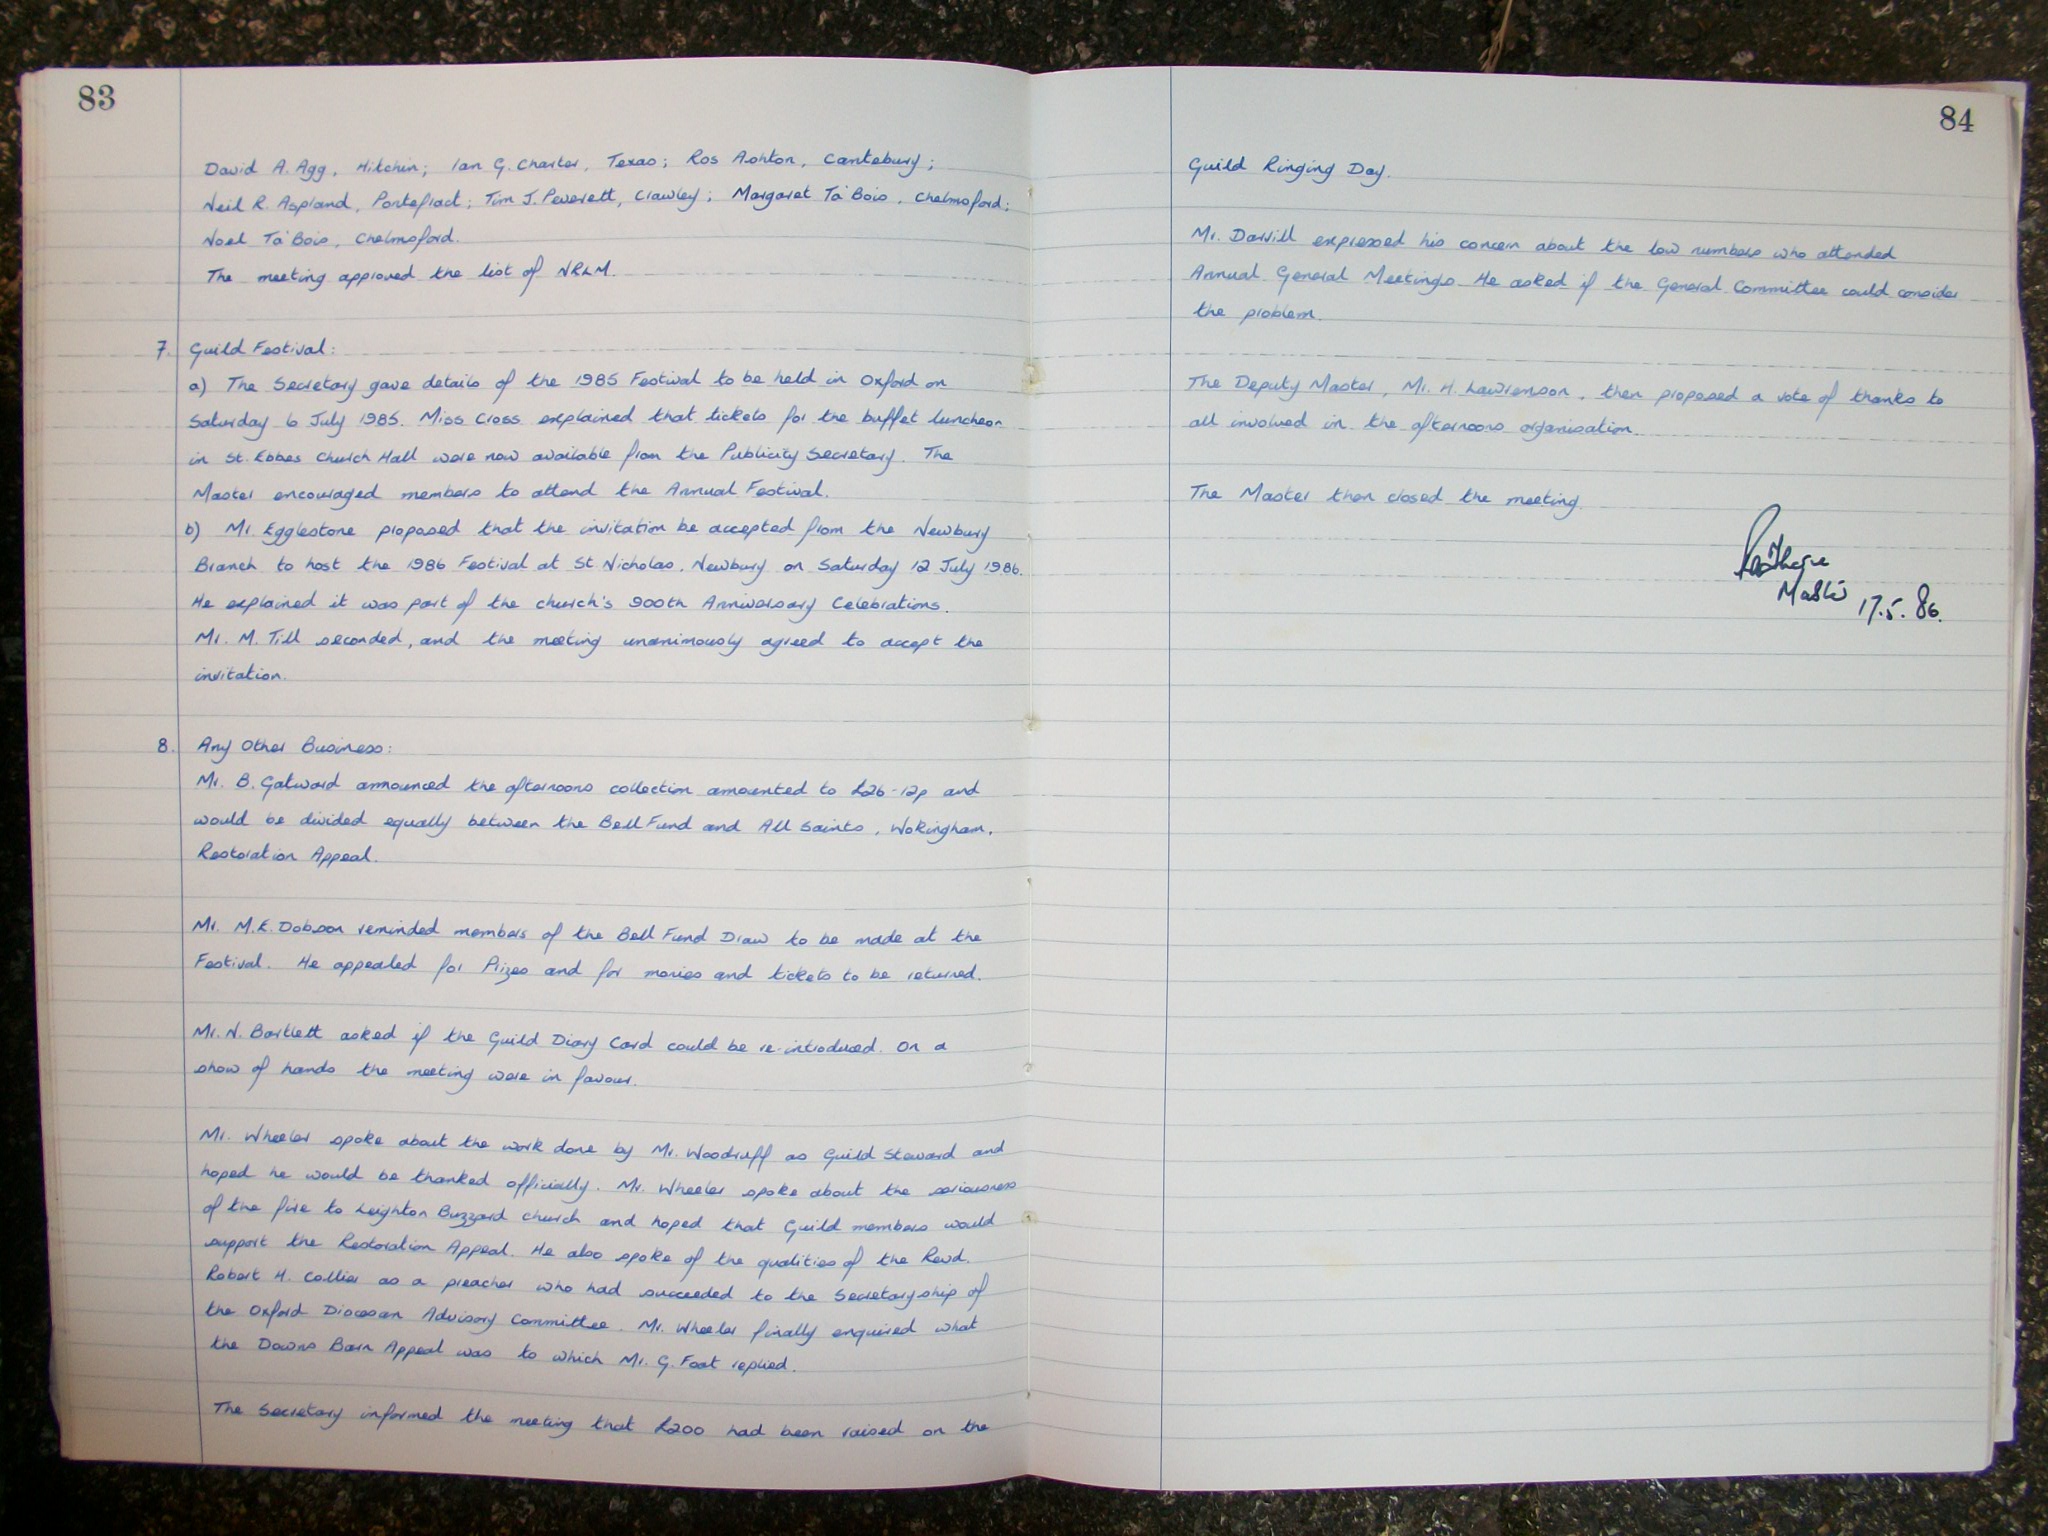 83
David A. Agg, Hitchin; Ian G. Charter, Texas; Ros Ashton, Cantebury;
Neil R. Aspland, Pontefract; Tim J. Peverett, Crawley; Margaret Ta'Bois, Chelmsford;
Noel Ta'Bois, Chelmsford.
The meeting approved the list of NRLM.
7. Guild Festival:
a) The Secretary gave details of the 1985 Festival to be held in Oxford on
Saturday 6 July 1985. Miss Cross explained that tickets for the buffet luncheon
in St. Ebbes Church Hall were now available from the Publicity Secretary. The
Master encouraged members to attend the Annual Festival.
b) Mr. Egglestone proposed that the invitation be accepted from the Newbury
Branch to host the 1986 Festival at St Nicholas, Newbury on Saturday 12 July 1986.
He explained it was part of the church's 900th Anniversary Celebrations.
Mr. M. Till seconded, and the meeting unanimously agreed to accept the
invitation.
8. Any Other Business:
Mr. B. Gatward announced the afternoons collection amounted to £26-12p and
would be divided equally between the Bell Fund and All Saints, Wokingham,
Restoration Appeal.
Mr. M.E. Dobson reminded members of the Bell Fund Draw to be made at the
Festival. He appealed for Prizes and for monies and tickets to be returned.
Mr. N. Bartlett asked if the Guild Diary Card could be re-introduced. On a
show of hands the meeting were in favour.
Mr. Wheeler spoke about the work done by Mr. Woodruff as Guild Steward and
hoped he would be thanked officially. Mr. Wheeler spoke about the seriousness
of the fire to Leighton Buzzard church and hoped that Guild members would
support the Restoration Appeal. He also spoke of the qualities of the Revd.
Robert H. Collier as a preacher who had succeeded to the Secretaryship of
the Oxford Diocesan Advisory Committee. Mr. Wheeler finally enquired what
the Downs Barn Appeal was to which Mr. G. Foot replied.
The Secretary informed the meeting that £200 had been raised on the
84
Guild Ringing Day.
Mr. Darvill expressed his concern about the low numbers who attended
Annual General Meetings. He asked if the General Committee could consider
the problem.
The Deputy Master, Mr. H. Lawrenson, then proposed a vote of thanks to
all involved in the afternoons organisation.
The Master then closed the meeting
Master 17.5.86.